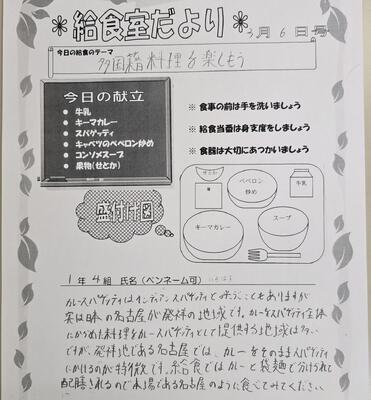 給食室だより
3月6日号
今日の給食のテーマ
多国籍料理を楽しもう
今日の献立
● 牛乳
● キーマカレー
● スパゲッティ
● キャベツのペペロン炒め
● コンソメスープ
● 果物(せとか)
※ 食事の前は手を洗いましょう
※ 給食当番は身支度をしましょう
※ 食器は大切にあつかいましょう
盛付け図
せとか
ペペロン
炒め
牛乳
キーマカレー
スープ
1年4組 氏名(ペンネーム可)
カレースパゲティはインディアンスパゲティと呼ぶこともありますが
実は日本の名古屋が発祥の地域です。カレーをスパゲティ全体
にからめた料理をカレースパゲティとして提供する地域は多い
ですが、発祥地である名古屋では、カレーをそのままスパゲティ
にかけるのが特徴です。給食ではカレーと袋麺で分けられて
配膳されるので本場である名古屋のように食べてみてください。